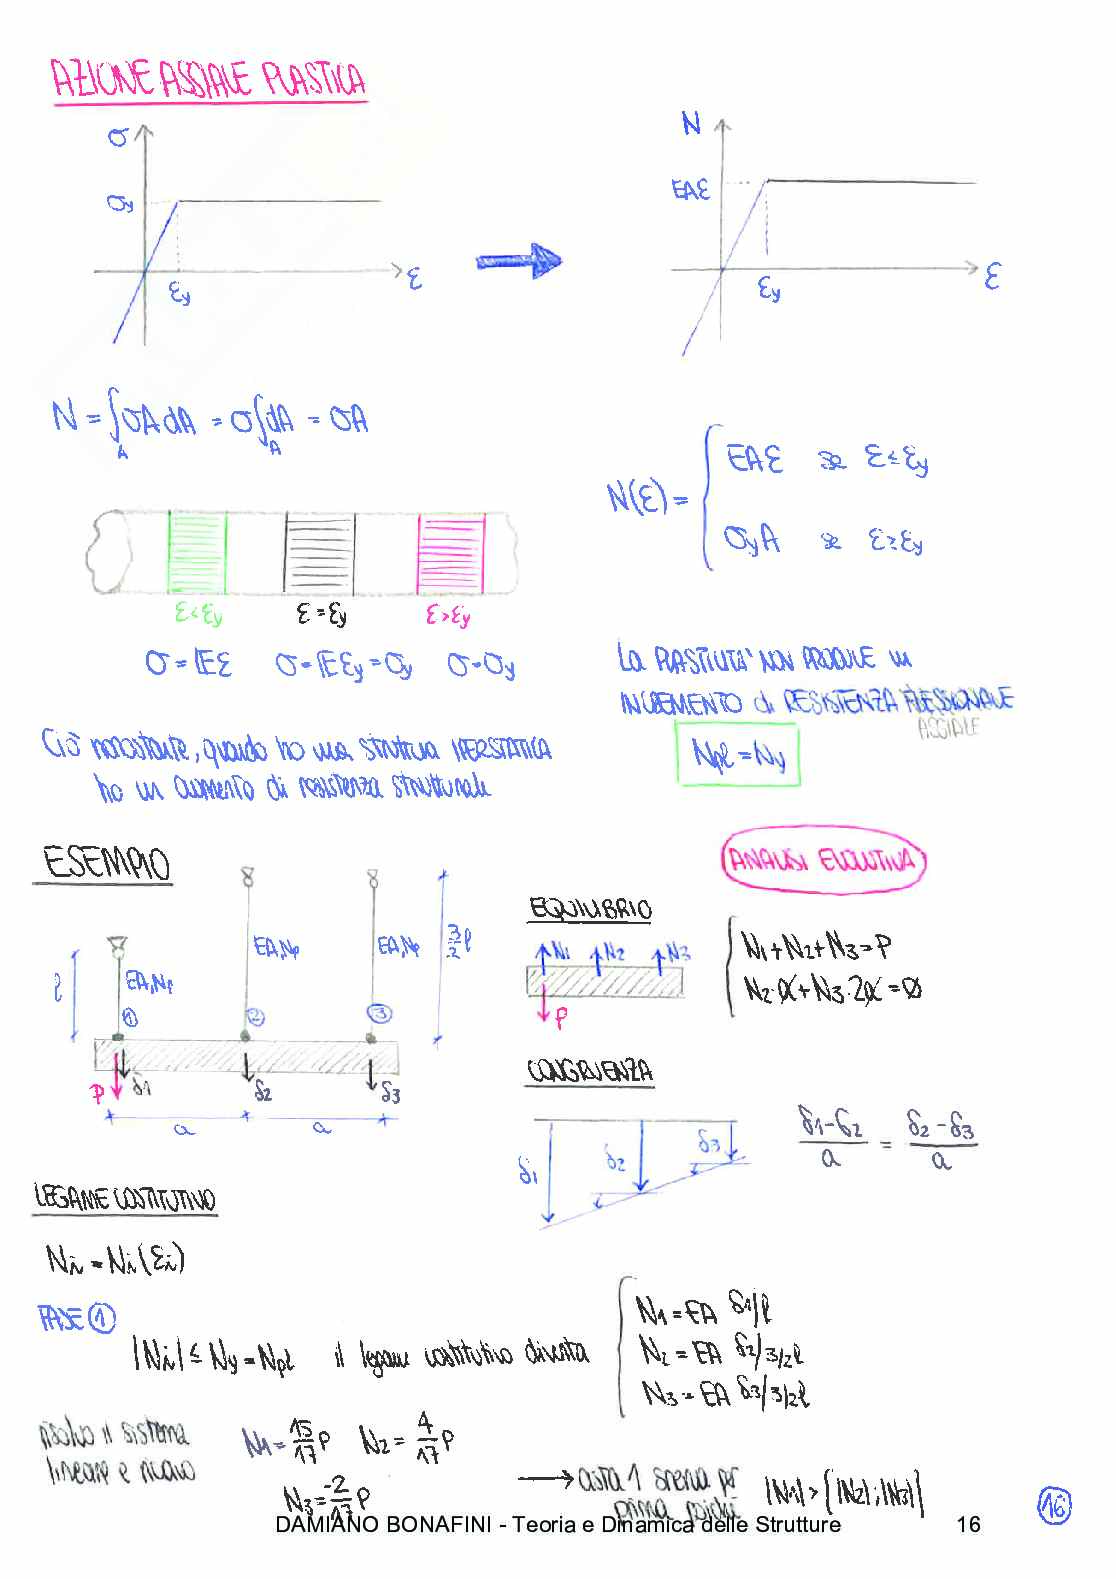 AZIONE ASSIALE PLASTICA
σ
σy
εy
ε
N
EAε
εy
ε
N = ∫A σA dA = σ∫A dA = σA
N(ε) = { EAε se ε ≤ εy
σyA se ε ≥ εy
ε < εy ε = εy ε > εy
σ = Eε σ = Eεy = σy σ = σy
La PLASTICITA' NON PRODUCE un
INCREMENTO di RESISTENZA FLESSIONALE
ASSIALE
Npl = Ny
Ciò nonostante, quando ho una struttura IPERSTATICA
ho un aumento di resistenza strutturale
ESEMPIO
ANALISI EVOLUTIVA
l
EA, Np
①
EA, Np
②
EA, Np
③
3/2 l
P
δ1
δ2
δ3
a
a
EQUILIBRIO
N1 N2 N3
P
{ N1 + N2 + N3 = P
N2·a + N3·2a = Ø
CONGRUENZA
δ1
δ2
δ3
(δ1 - δ2)/a = (δ2 - δ3)/a
LEGAME COSTITUTIVO
Ni = Ni(εi)
FASE ①
|Ni| ≤ Ny = Npl il legame costitutivo diventa
{ N1 = EA δ1/l
N2 = EA δ2/3/2l
N3 = EA δ3/3/2l
risolvo il sistema
lineare e ricavo
N1 = 15/17 P N2 = 4/17 P
N3 = -2/17 P
→ asta 1 snerva per
prima poiché |N1| > {|N2|; |N3|}
DAMIANO BONAFINI - Teoria e Dinamica delle Strutture 16
16